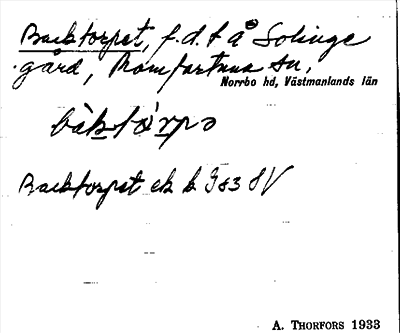 Backtorpet, f.d. t å Solinge
gård, Romfartuna sn,
Norrbo hd, Västmanlands län
bàktàrpə
Backtorpet ek b 383 SV
A. THORFORS 1933